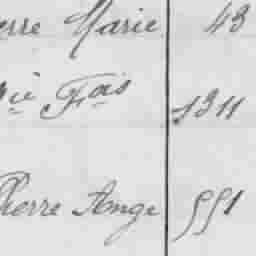 erre Marie 43
ie Fois 1311
Pierre Ange 551